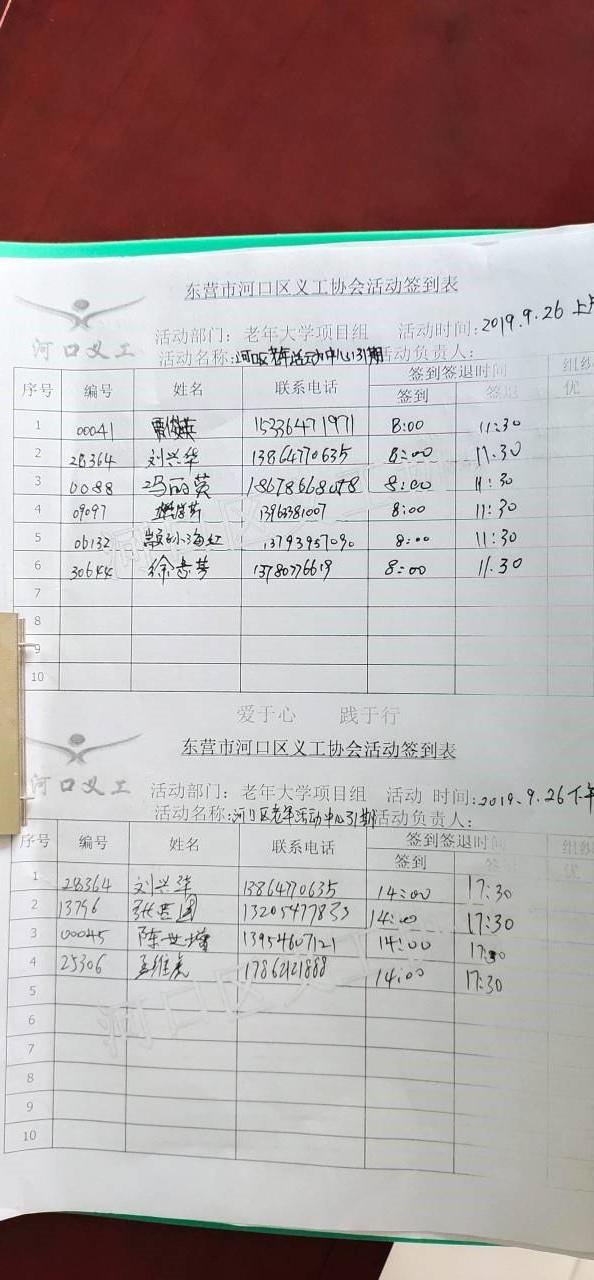 东营市河口区义工协会活动签到表
河口义工
活动部门: 老年大学项目组 活动时间: 2019.9.26 上
活动名称: 河口区老年活动中心131期 活动负责人:
序号 编号 姓名 联系电话 签到签退时间 组织
签到 签退 优
1 00041 15336471971 8:00 11:30
2 28364 刘兴华 13864770635 8:00 11:30
3 0088 冯丽英 18678668078 8:00 11:30
4 09097 13963381007 8:00 11:30
5 06132 13793957090 8:00 11:30
6 30644 徐 13780776619 8:00 11.30
7
8
9
10
爱于心 践于行
东营市河口区义工协会活动签到表
河口义工
活动部门: 老年大学项目组 活动 时间: 2019.9.26 下午
活动名称: 河口区老年活动中心 活动负责人:
序号 编号 姓名 联系电话 签到签退时间 组织
签到 优
1 28364 刘兴华 13864770635 14:00 17:30
2 13796 14:00 17:30
3 00045 陈 13954607121 14:00
4 25306 孟维虎 17862121888 14:00 17:30
5
6
7
8
9
10